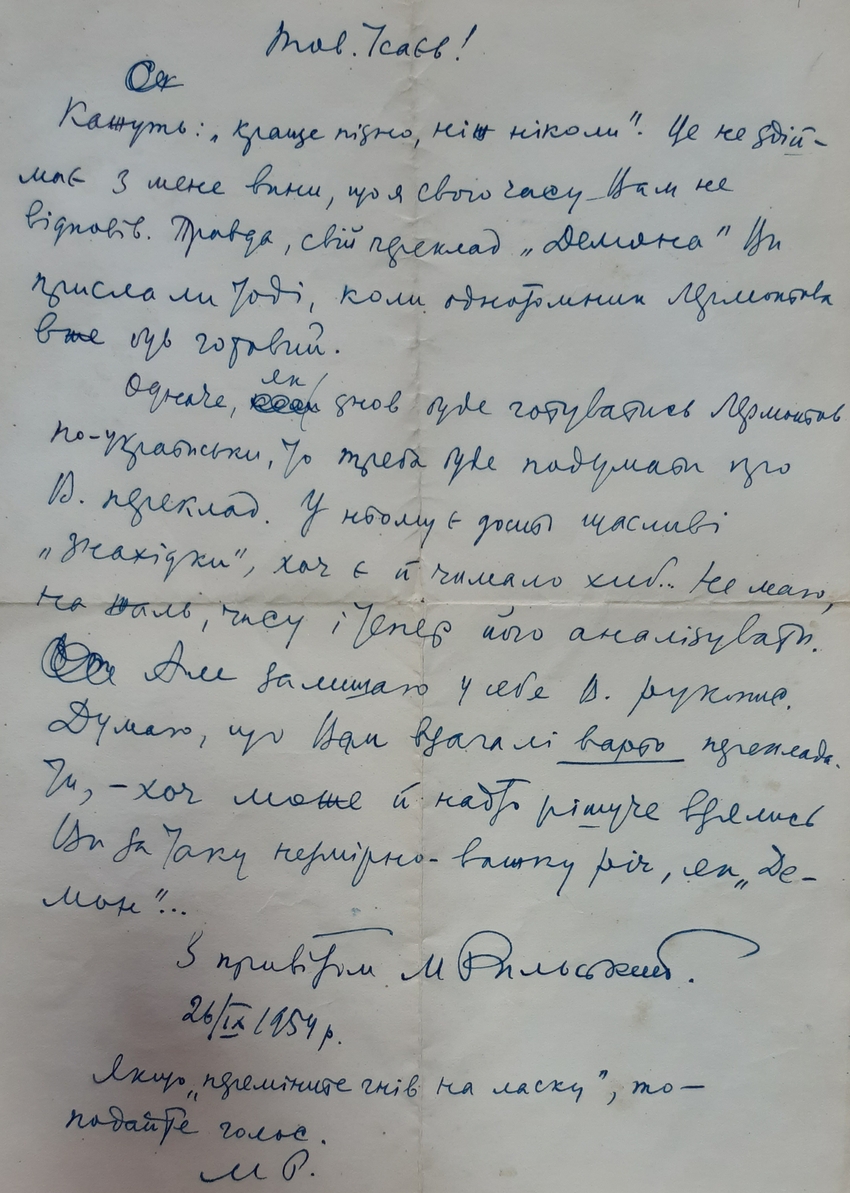 Тов. Ісаєв!
Кажуть: „краще пізно, ніж ніколи". Це не здій-
має з мене вини, що я свого часу Вам не
відповів. Правда, свій переклад „Демона" Ви
прислали тоді, коли однотомник Лермонтова
вже був готовий.
Одначе, як знов буде готуватись Лермонтов
по-українськи, то треба буде подумати про
В. переклад. У ньому є досить щасливі
„знахідки", хоч є й чимало хиб.. Не маю,
на жаль, часу і тепер його аналізувати.
Але залишаю у себе В. рукопис.
Думаю, що Вам взагалі варто переклада-
ти, – хоч може й надто рішуче взялись
Ви за таку незмірно-важку річ, як „Де-
мон"...
З привітом М Рильський.
26/IX 1954 р.
Якщо „переміните гнів на ласку", то –
подайте голос.
М Р.